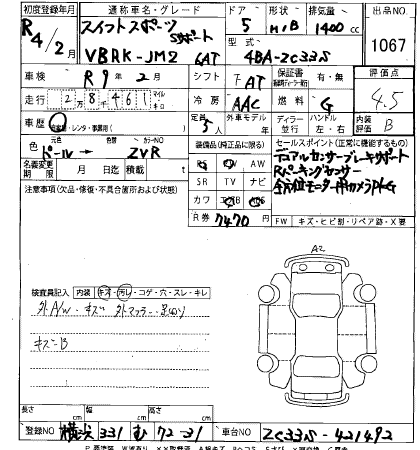 初度登録年月 通称車名・グレード ドア 形状 排気量 出品NO
R4/2月 スイフトスポーツ 5 H/B 1400cc 1067
VBRK-JM2 6AT 型式 4BA-ZC33S
車検 R9年2月 シフト FAT 保証書 有・無 評価点
走行 28461 冷房 AAC 燃料 G 4.5
車歴 自家用・レンタ・事業用( ) 定員 5人 外車モデル 年 ディーラー 並行 ハンドル 左・右 内装評価 B
色 元色 カラーNO 装備品(純正品に限る) セールスポイント(正常に機能するもの)
パール→ ZVR PS PW AW デュアルセンサーブレーキサポート
名義変更期限 月 日迄 積載量 t SR TV ナビ Rパーキングセンサー
注意事項(欠品・修復・不具合箇所および状態) カワ 全方位モニター用カメラPKG
R券 7470円 FW キズ・ヒビ割・リペア跡・X
A2
検査員記入 内装 キズ・汚レ・コゲ・穴・スレ・キレ
外A/W キズ 外マフラー
キズB
長さ cm 幅 cm 高さ cm
登録NO 横浜 331 む 72-31 車台NO ZC33S-421492